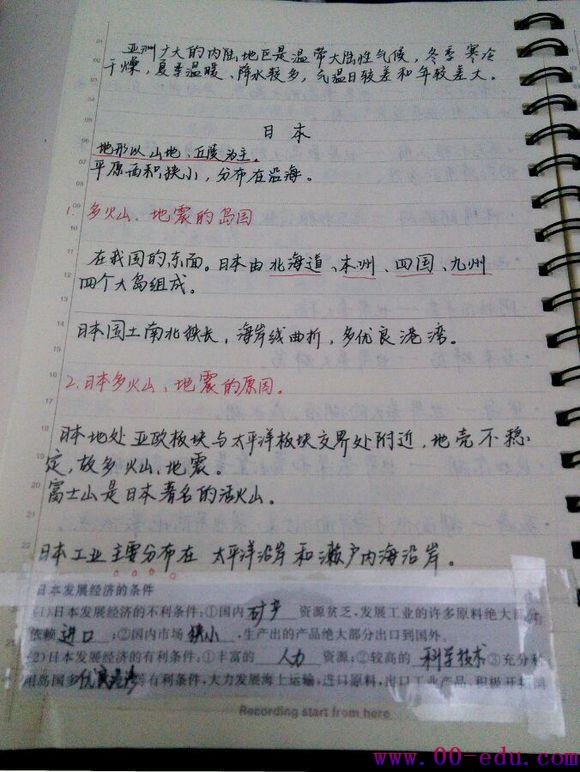 亚洲广大的内陆地区是温带大陆性气候，冬季寒冷
干燥，夏季温暖、降水较多，气温日较差和年较差大。
日本
地形以山地、丘陵为主。
平原面积狭小，分布在沿海。
1. 多火山、地震的岛国
在我国的东面。日本由北海道、本州、四国、九州
四个大岛组成。
日本国土南北狭长，海岸线曲折，多优良港湾。
2. 日本多火山、地震的原因。
日本地处亚欧板块与太平洋板块交界处附近，地壳不稳
定，故多火山、地震。
富士山是日本著名的活火山。
日本工业主要分布在太平洋沿岸和濑户内海沿岸。
日本发展经济的条件
(1)日本发展经济的不利条件：①国内 矿产 资源贫乏，发展工业的许多原料绝大部分
依赖 进口 ；②国内市场 狭小 ，生产出的产品绝大部分出口到国外。
(2)日本发展经济的有利条件：①丰富的 人力 资源；②较高的 科学技术 ③充分利
用岛国多 优良港湾 等有利条件，大力发展海上运输，进口原料，出口工业产品，积极开拓国
Recording start from here
www.00-edu.com